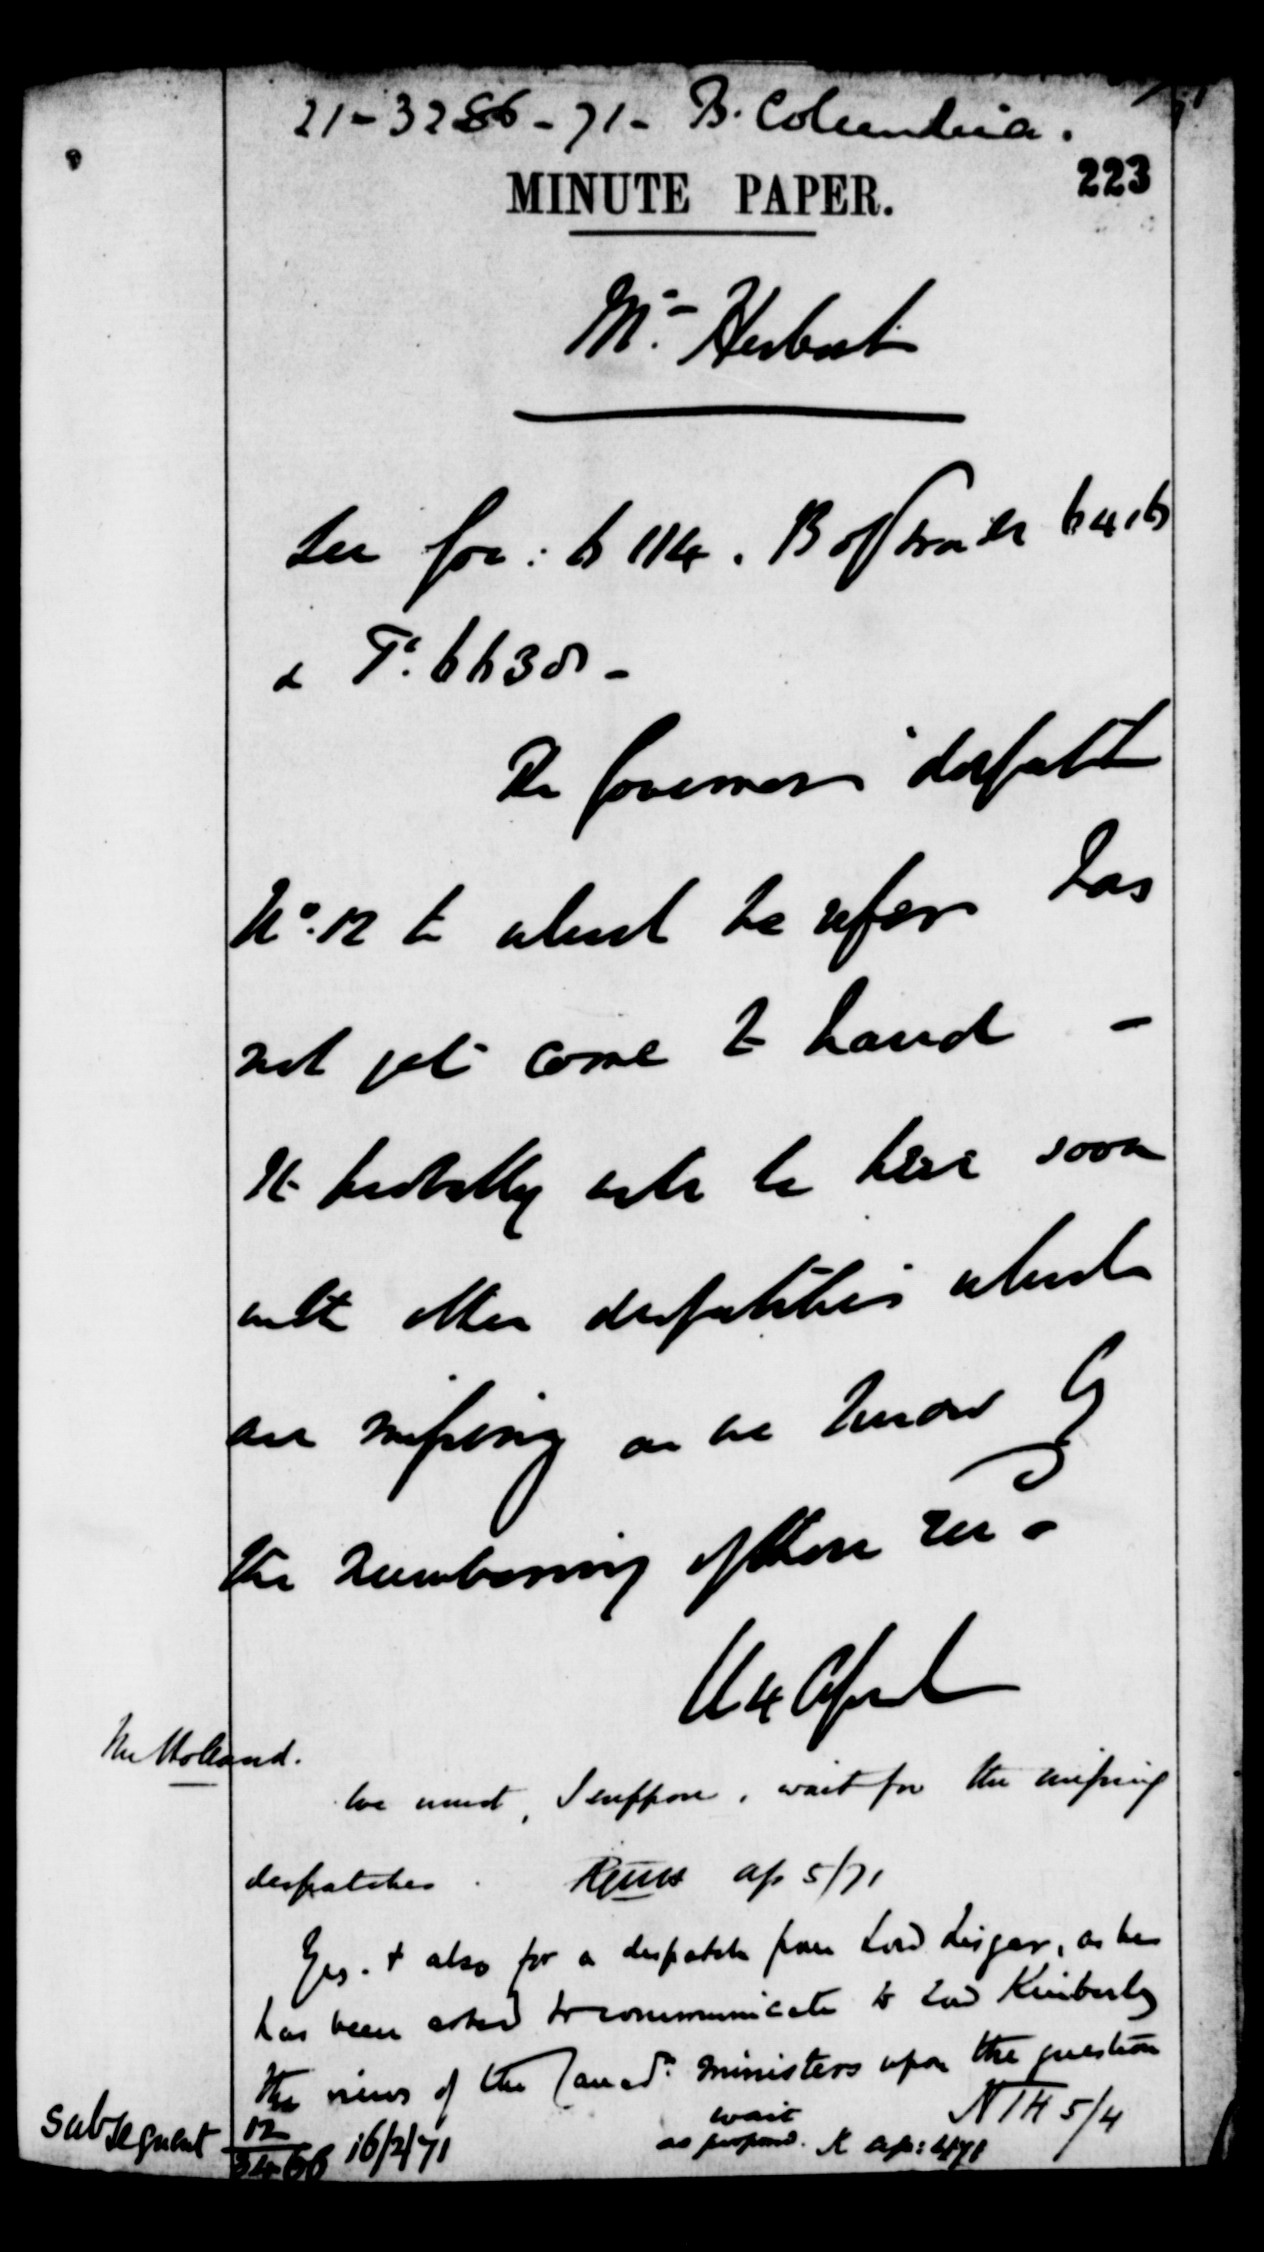 21-3286-71- B. Columbia.
223
MINUTE PAPER.
Mr. Herbert
See for: 6114. B of Trade
& Ty. 6638-
The Governor's despatch
No. 12 to which he refers has
not yet come to hand -
It probably will be here soon
with other despatches which
are missing as we know by
the numbering of those recd
4 April
Mr Holland.
We must, I suppose, wait for the missing
despatches. RGWH Ap 5/71
Yes. & also for a despatch from Lord Lisgar, as he
has been asked to communicate to Lord Kimberley
the views of the Canadn. ministers upon the question
NTH 5/4
wait
as proposed. K ap:
Subsequent 12/3466 16/2/71